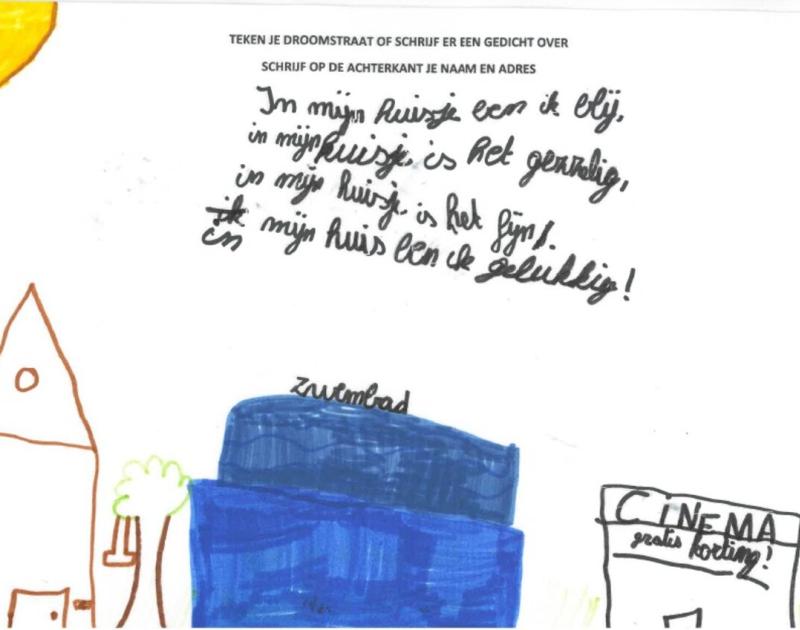 TEKEN JE DROOMSTRAAT OF SCHRIJF ER EEN GEDICHT OVER
SCHRIJF OP DE ACHTERKANT JE NAAM EN ADRES
In mijn huisje ben ik blij,
in mijn huisje is het gezellig,
in mijn huisje is het fijn!.
ik
in mijn huis ben ik gelukkig!
zwembad
CINEMA
gratis korting!